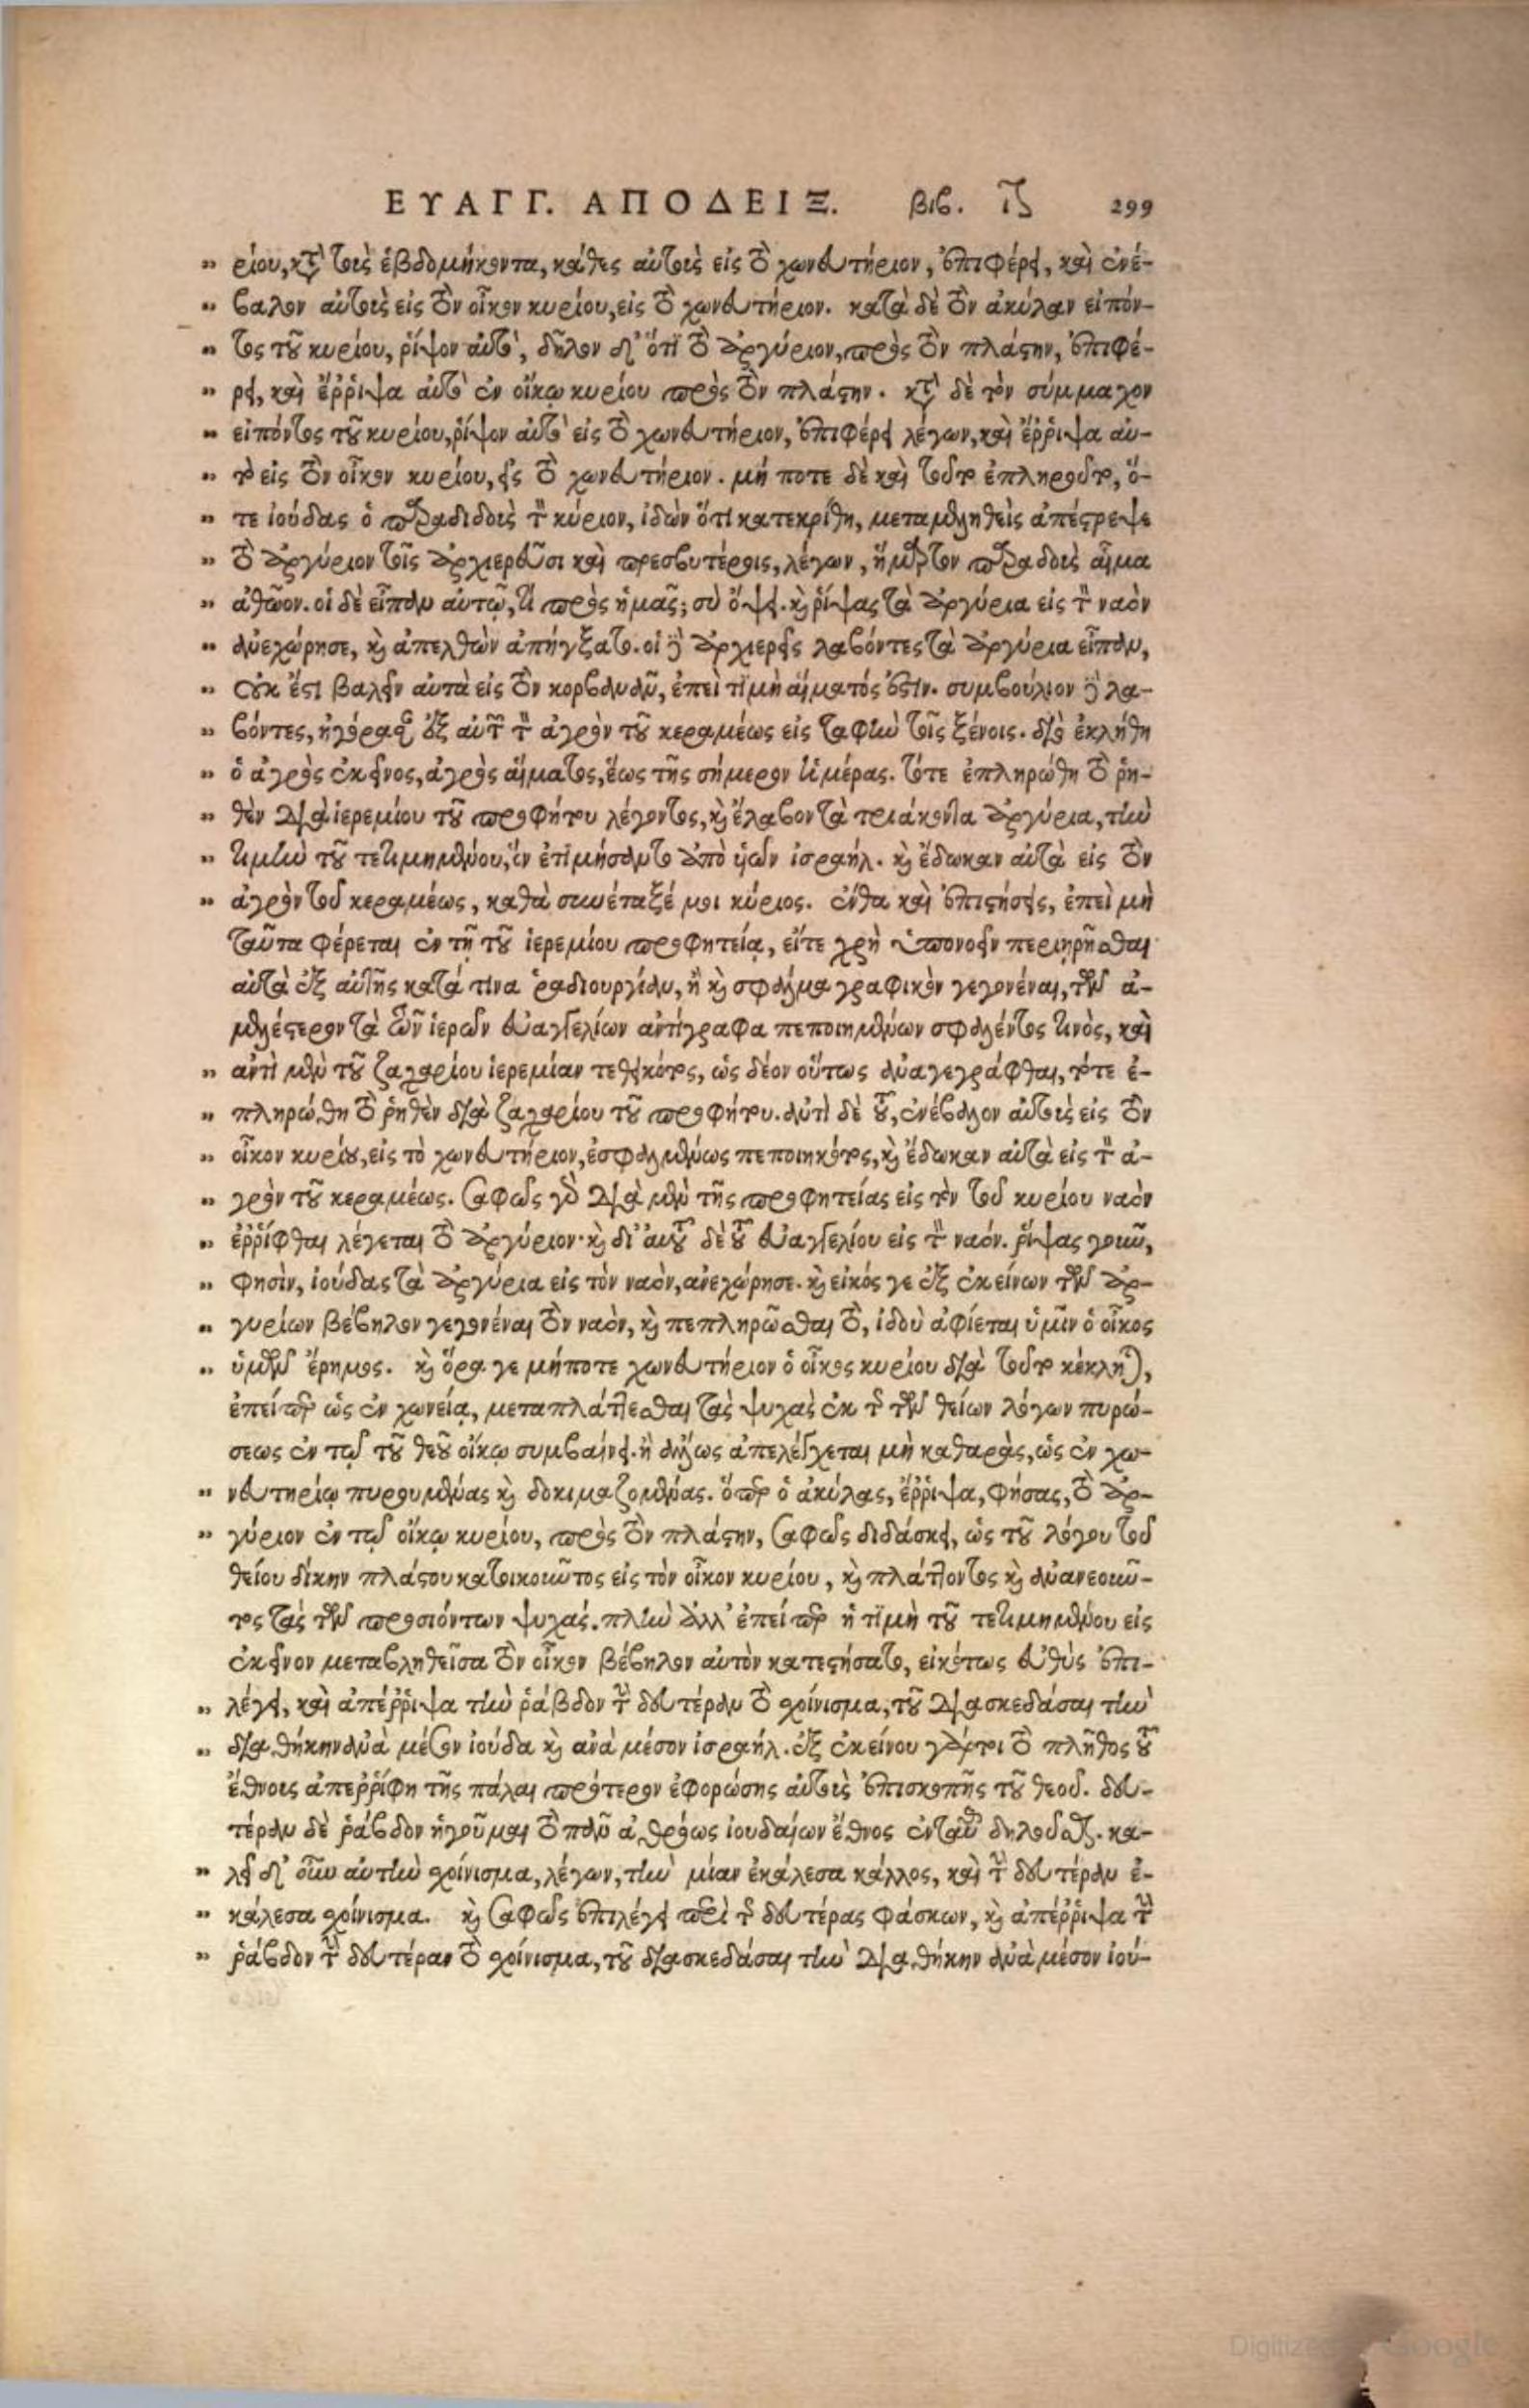 ΕΥΑΓΓ. ΑΠΟΔΕΙΞ. βιβ. ιζ 299
ρίου, κατὰ τοὺς ἑβδομήκοντα, κάθες αὐτοὺς εἰς τὸ χωνευτήριον, ἐπιφέρει, καὶ ἐνέ-
βαλον αὐτοὺς εἰς τὸν οἶκον κυρίου, εἰς τὸ χωνευτήριον. κατὰ δὲ τὸν ἀκύλαν εἰπόν-
τος τοῦ κυρίου, ῥίψον αὐτὸ, δῆλον δ' ὅτι τὸ ἀργύριον, πρὸς τὸν πλάστην, ἐπιφέ-
ρει, καὶ ἔῤῥιψα αὐτὸ ἐν οἴκῳ κυρίου πρὸς τὸν πλάστην. κατὰ δὲ τὸν σύμμαχον
εἰπόντος τοῦ κυρίου, ῥίψον αὐτὸ εἰς τὸ χωνευτήριον, ἐπιφέρει λέγων, καὶ ἔῤῥιψα αὐ-
τὸ εἰς τὸν οἶκον κυρίου, εἰς τὸ χωνευτήριον. μή ποτε δὲ καὶ τοῦτο ἐπληροῦτο, ὅ-
τε ἰούδας ὁ παραδιδοὺς τὸν κύριον, ἰδὼν ὅτι κατεκρίθη, μεταμεληθεὶς ἀπέστρεψε
τὸ ἀργύριον τοῖς ἀρχιερεῦσι καὶ πρεσβυτέροις, λέγων, ἥμαρτον παραδοὺς αἷμα
ἀθῶον. οἱ δὲ εἶπαν αὐτῷ, τί πρὸς ἡμᾶς; σὺ ὄψει. καὶ ῥίψας τὰ ἀργύρια εἰς τὸν ναὸν
ἀνεχώρησε, καὶ ἀπελθὼν ἀπήγξατο. οἱ δὲ ἀρχιερεῖς λαβόντες τὰ ἀργύρια εἶπαν,
οὐκ ἔστι βαλεῖν αὐτὰ εἰς τὸν κορβανᾶν, ἐπεὶ τιμὴ αἵματός ἐστιν. συμβούλιον δὲ λα-
βόντες, ἠγόρασαν ἐξ αὐτῶν τὸν ἀγρὸν τοῦ κεραμέως εἰς ταφὴν τοῖς ξένοις. διὸ ἐκλήθη
ὁ ἀγρὸς ἐκεῖνος, ἀγρὸς αἵματος, ἕως τῆς σήμερον ἡμέρας. τότε ἐπληρώθη τὸ ῥη-
θὲν διὰ ἱερεμίου τοῦ προφήτου λέγοντος, καὶ ἔλαβον τὰ τριάκοντα ἀργύρια, τὴν
τιμὴν τοῦ τετιμημένου, ὃν ἐτιμήσαντο ἀπὸ υἱῶν ἰσραήλ. καὶ ἔδωκαν αὐτὰ εἰς τὸν
ἀγρὸν τοῦ κεραμέως, καθὰ συνέταξέ μοι κύριος. ἔνθα καὶ ἐπιστήσεις, ἐπεὶ μὴ
ταῦτα φέρεται ἐν τῇ τοῦ ἱερεμίου προφητείᾳ, εἴτε χρὴ ὑπονοεῖν περιῃρῆσθαι
αὐτὰ ἐξ αὐτῆς κατά τινα ῥαδιουργίαν, ἢ καὶ σφάλμα γραφικὸν γεγονέναι, τῶν ἀ-
μελέστερον τὰ τῶν ἱερῶν εὐαγγελίων ἀντίγραφα πεποιημένων σφαλέντος τινὸς, καὶ
ἀντὶ μὲν τοῦ ζαχαρίου ἱερεμίαν τεθεικότος, ὡς δέον οὕτως ἀναγεγράφθαι, τότε ἐ-
πληρώθη τὸ ῥηθὲν διὰ ζαχαρίου τοῦ προφήτου. ἀντὶ δὲ τοῦ, ἐνέβαλον αὐτοὺς εἰς τὸν
οἶκον κυρίου, εἰς τὸ χωνευτήριον, ἐσφαλμένως πεποιηκότος, καὶ ἔδωκαν αὐτὰ εἰς τὸν ἀ-
γρὸν τοῦ κεραμέως. σαφῶς γοῦν διὰ μὲν τῆς προφητείας εἰς τὸν τοῦ κυρίου ναὸν
ἐῤῥίφθαι λέγεται τὸ ἀργύριον· καὶ δι' αὐτοῦ δὲ τοῦ εὐαγγελίου εἰς τὸν ναόν. ῥίψας γοῦν,
φησὶν, ἰούδας τὰ ἀργύρια εἰς τὸν ναὸν, ἀνεχώρησε. καὶ εἰκός γε ἐξ ἐκείνων τῶν ἀρ-
γυρίων βέβηλον γεγονέναι τὸν ναὸν, καὶ πεπληρῶσθαι τὸ, ἰδοὺ ἀφίεται ὑμῖν ὁ οἶκος
ὑμῶν ἔρημος. καὶ ὅρα γε μήποτε χωνευτήριον ὁ οἶκος κυρίου διὰ τοῦτο κέκληται,
ἐπείπερ ὡς ἐν χωνείᾳ, μεταπλάττεσθαι τὰς ψυχὰς ἐκ τῆς τῶν θείων λόγων πυρώ-
σεως ἐν τῷ τοῦ θεοῦ οἴκῳ συμβαίνει. ἢ ἄλλως ἀπελέγχεται μὴ καθαρὰς, ὡς ἐν χω-
νευτηρίῳ πυρουμένας καὶ δοκιμαζομένας. ὅπερ ὁ ἀκύλας, ἔῤῥιψα, φήσας, τὸ ἀρ-
γύριον ἐν τῷ οἴκῳ κυρίου, πρὸς τὸν πλάστην, σαφῶς διδάσκει, ὡς τοῦ λόγου τοῦ
θείου δίκην πλάστου κατοικοῦντος εἰς τὸν οἶκον κυρίου, καὶ πλάττοντος καὶ ἀνανεοῦν-
τος τὰς τῶν προσιόντων ψυχάς. πλὴν ἀλλ' ἐπείπερ ἡ τιμὴ τοῦ τετιμημένου εἰς
ἐκεῖνον μεταβληθεῖσα τὸν οἶκον βέβηλον αὐτὸν κατεστήσατο, εἰκότως εὐθὺς ἐπι-
λέγει, καὶ ἀπέῤῥιψα τὴν ῥάβδον τὴν δευτέραν τὸ σχοίνισμα, τοῦ διασκεδάσαι τὴν
διαθήκην ἀνὰ μέσον ἰούδα καὶ ἀνὰ μέσον ἰσραήλ. ἐξ ἐκείνου γάρτοι τὸ πλῆθος τοῦ
ἔθνους ἀπεῤῥίφη τῆς πάλαι πρότερον ἐφορώσης αὐτοὺς ἐπισκοπῆς τοῦ θεοῦ. δευ-
τέραν δὲ ῥάβδον ἡγοῦμαι τὸ πᾶν ἀθρόως ἰουδαίων ἔθνος ἐνταῦθα δηλοῦσθαι. κα-
λεῖ δ' οὖν αὐτὴν σχοίνισμα, λέγων, τὴν μίαν ἐκάλεσα κάλλος, καὶ τὴν δευτέραν ἐ-
κάλεσα σχοίνισμα. καὶ σαφῶς ἐπιλέγει περὶ τῆς δευτέρας φάσκων, καὶ ἀπέῤῥιψα τὴν
ῥάβδον τὴν δευτέραν τὸ σχοίνισμα, τοῦ διασκεδάσαι τὴν διαθήκην ἀνὰ μέσον ἰού-
Digitized by Google